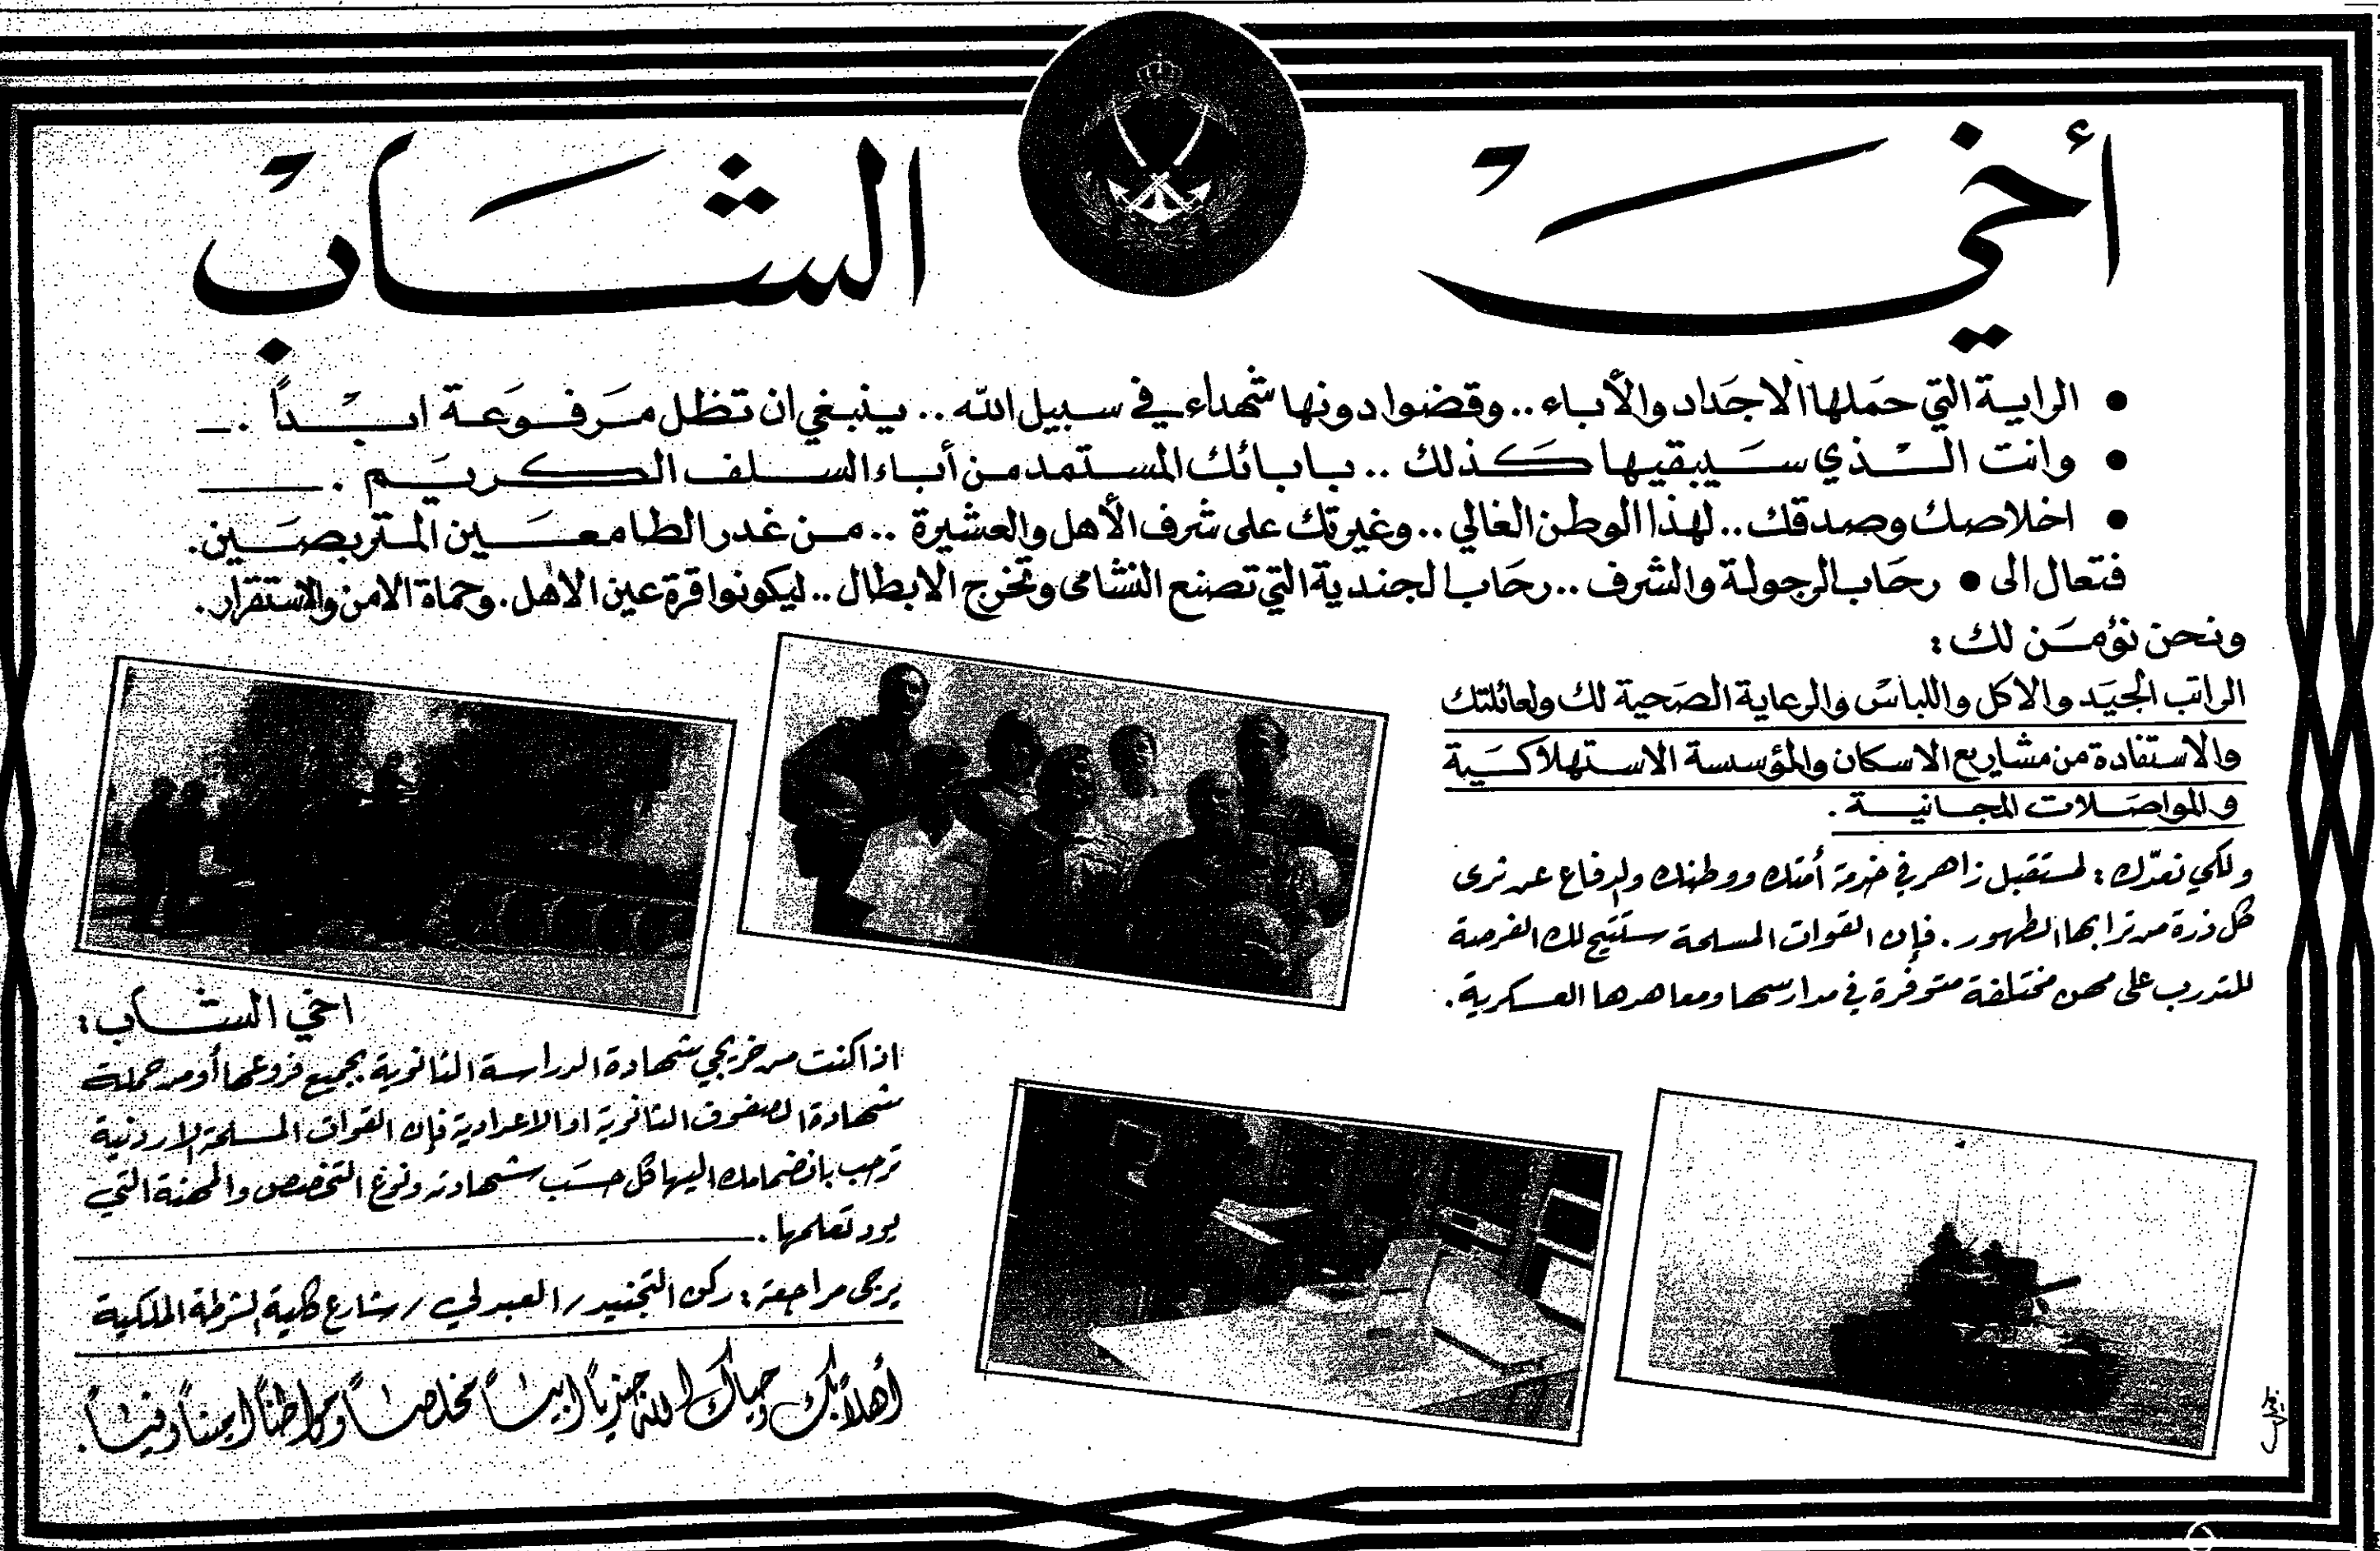 أخي الشاب
• الراية التي حملها الاجداد والأباء .. وقضوا دونها شهداء في سبيل الله .. ينبغي ان تظل مرفوعة ابداً .
• وانت الذي سيبقيها كذلك .. بابائك المستمد من أباء السلف الكريم .
• اخلاصك وصدقك .. لهذا الوطن الغالي .. وغيرتك على شرف الأهل والعشيرة .. من غدر الطامعين المتربصين .
فتعال الى • رحاب الرجولة والشرف .. رحاب الجندية التي تصنع النشامى وتخرج الابطال .. ليكونوا قرة عين الاهل . وحماة الامن والاستقرار .
ونحن نؤمن لك :
الراتب الجيد والاكل واللباس والرعاية الصحية لك ولعائلتك
والاستفادة من مشاريع الاسكان والمؤسسة الاستهلاكية
والمواصلات المجانية .
ولكي نعدّك : لمستقبل زاهر في خدمة أمتك ووطنك والدفاع عن ثرى
كل ذرة من ترابها الطهور . فإن القوات المسلحة ستتيح لك الفرصة
للتدرب على مهن مختلفة متوفرة في مدارسها ومعاهدها العسكرية .
اخي الشاب :
اذا كنت من خريجي شهادة الدراسة الثانوية بجميع فروعها أو من حملة
شهادة الصفوف الثانوية او الاعدادية فإن القوات المسلحة الاردنية
ترحب بانضمامك اليها كل حسب شهادته ونوع التخصص والمهنة التي
يود تعلمها .
يرجى مراجعة : ركن التجنيد / العبدلي / شارع كلية الشرطة الملكية
أهلاً بك وحياك الله جندياً ابياً مخلصاً ومواطناً اميناً وفياً .